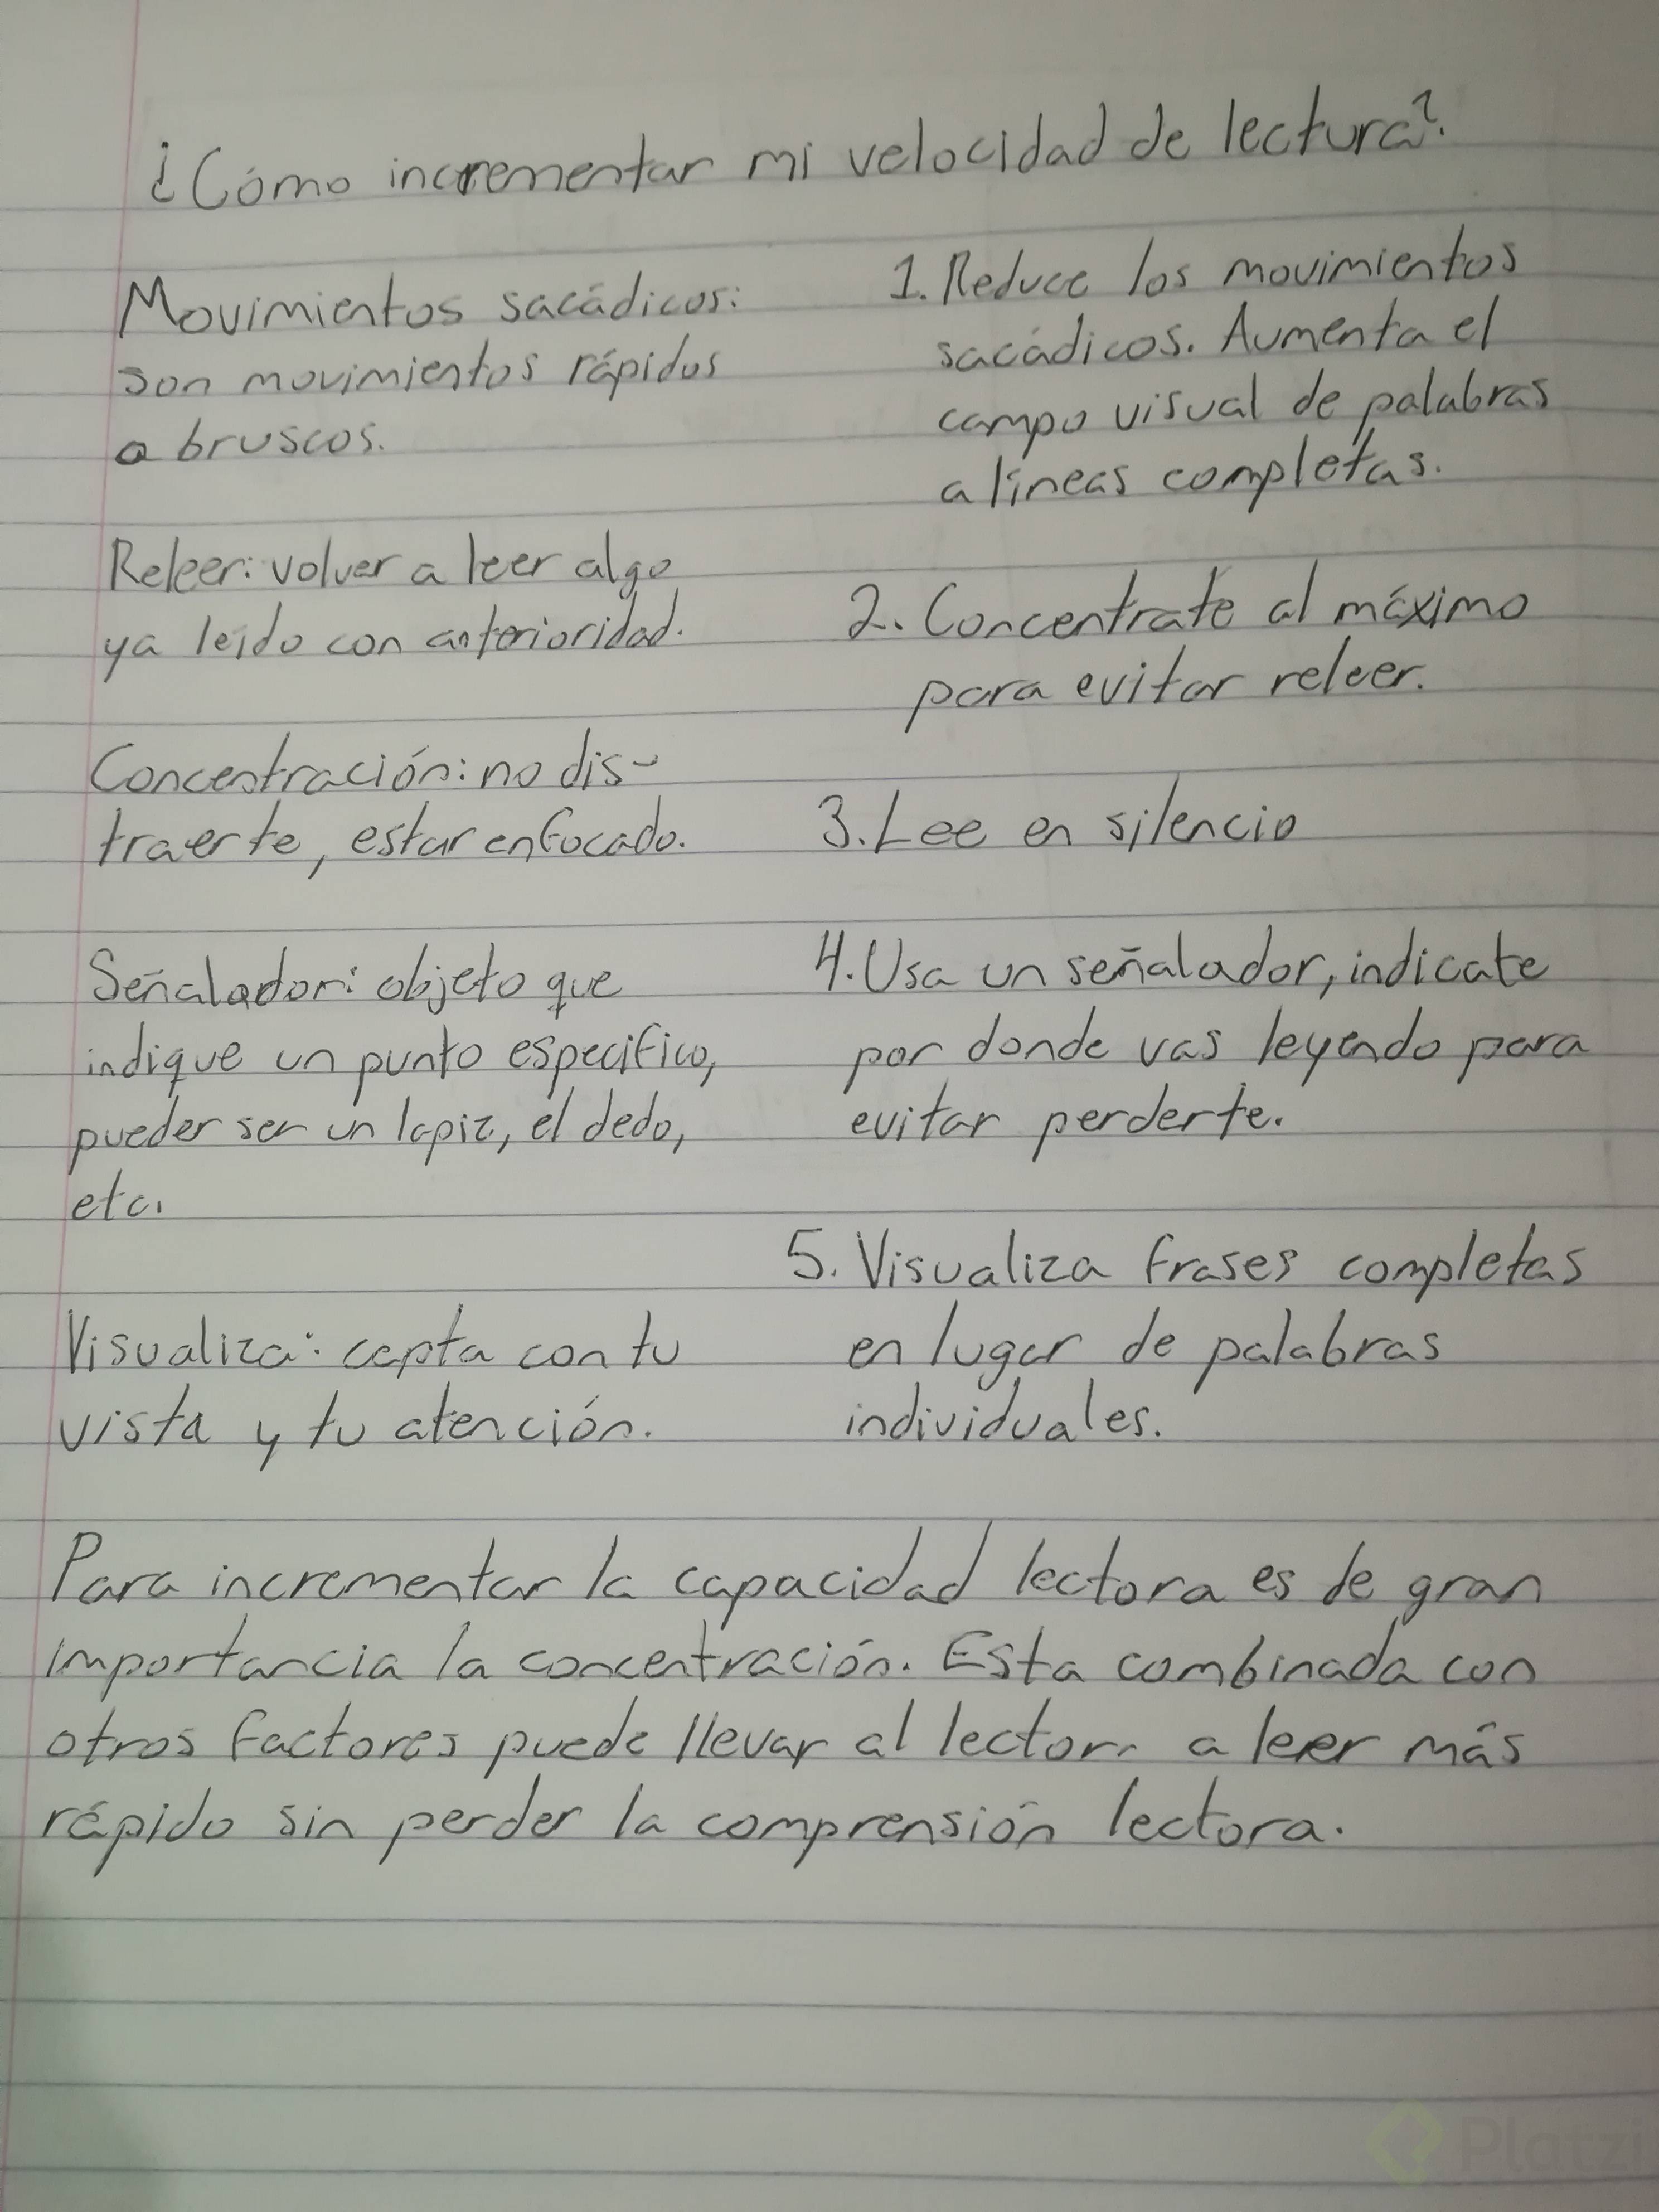 ¿Cómo incrementar mi velocidad de lectura?
Movimientos sacádicos:
son movimientos rápidos
o bruscos.
Releer: volver a leer algo
ya leído con anterioridad.
Concentración: no dis-
traerte, estar enfocado.
Señalador: objeto que
indique un punto especifico,
pueder ser un lapiz, el dedo,
etc.
Visualiza: capta con tu
vista y tu atención.
1. Reduce los movimientos
sacádicos. Aumenta el
campo visual de palabras
a líneas completas.
2. Concentrate al máximo
para evitar releer.
3. Lee en silencio
4. Usa un señalador, indicate
por donde vas leyendo para
evitar perderte.
5. Visualiza frases completas
en lugar de palabras
individuales.
Para incrementar la capacidad lectora es de gran
importancia la concentración. Esta combinada con
otros factores puede llevar al lector a leer más
rápido sin perder la comprensión lectora.
Platzi